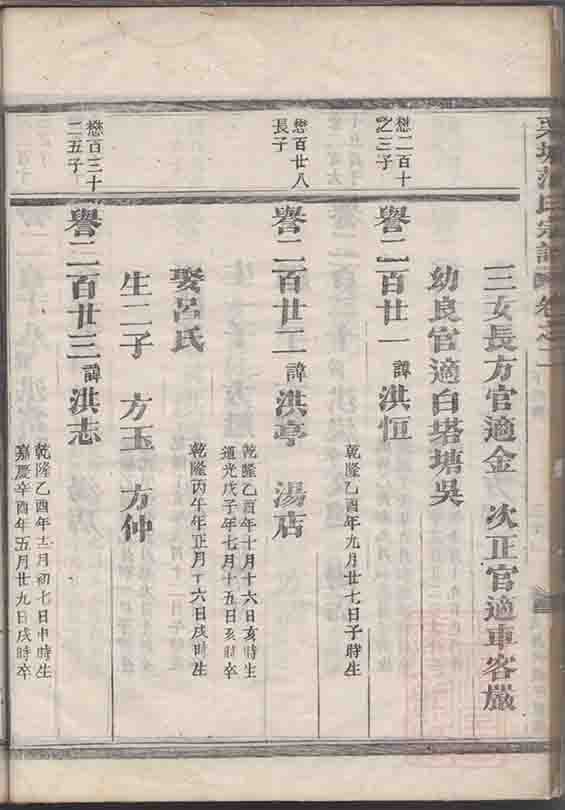 氏宗譜 卷之二
三女長方官適金 次正官適車客嚴
幼良官適白塔塘吳
懋二百十
之三子
譽二百廿一 諱洪恒
乾隆乙酉年九月廿七日子時生
懋百廿八
長子
譽二百廿二 諱洪亭 湯店
乾隆乙酉年十月十六日亥時生
道光戊子年七月十五日亥時卒
娶呂氏
乾隆丙午年正月十六日戌時生
生二子 方玉 方仲
懋百三十
二五子
譽二百廿三 諱洪志
乾隆乙酉年十二月初七日申時生
嘉慶辛酉年五月廿九日戌時卒